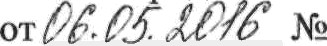 от 06.05.2016 №